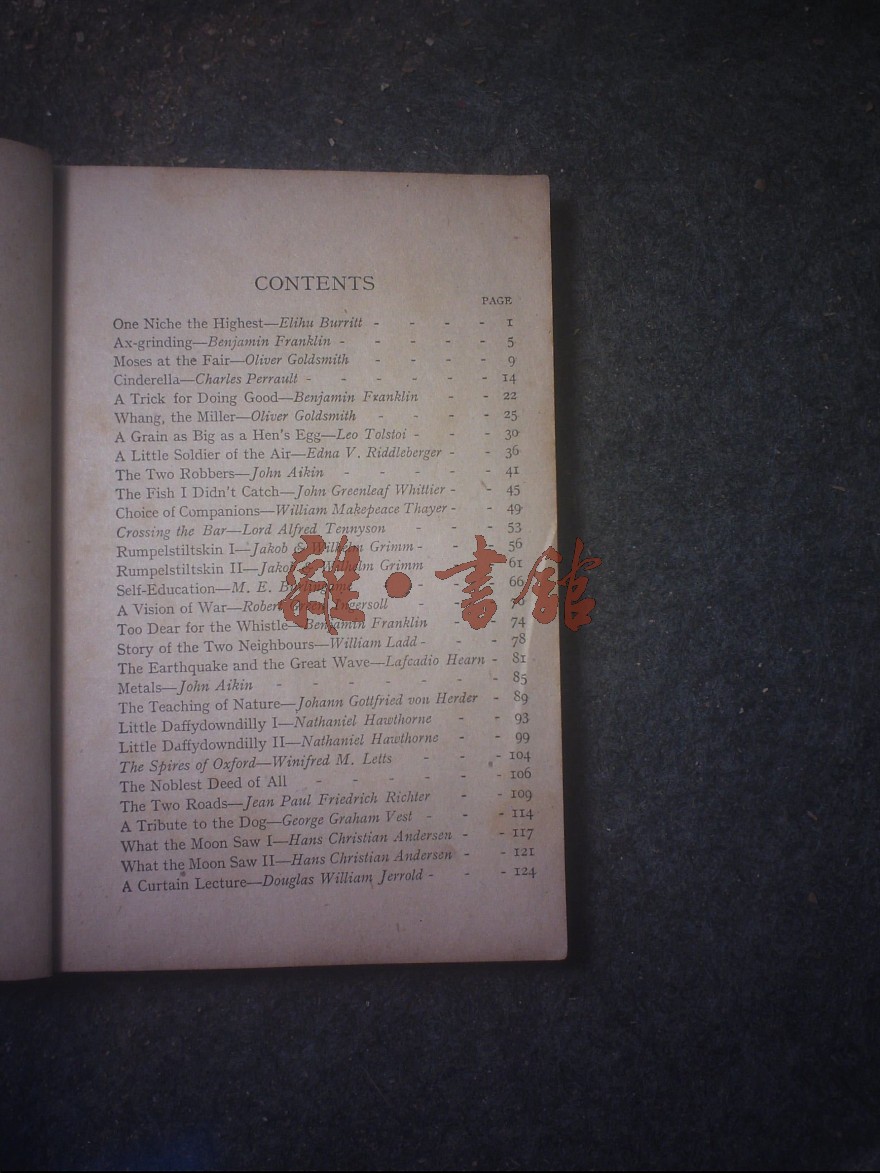 CONTENTS
PAGE
One Niche the Highest—Elihu Burritt - - - - 1
Ax-grinding—Benjamin Franklin - - - - - 5
Moses at the Fair—Oliver Goldsmith - - - - 9
Cinderella—Charles Perrault - - - - - - 14
A Trick for Doing Good—Benjamin Franklin - - 22
Whang, the Miller—Oliver Goldsmith - - - - 25
A Grain as Big as a Hen's Egg—Leo Tolstoi - - - 30
A Little Soldier of the Air—Edna V. Riddleberger - - - 36
The Two Robbers—John Aikin - - - - - 41
The Fish I Didn't Catch—John Greenleaf Whittier - - 45
Choice of Companions—William Makepeace Thayer - - - 49
Crossing the Bar—Lord Alfred Tennyson - - - 53
Rumpelstiltskin I—Jakob & Wilhelm Grimm - - - 56
Rumpelstiltskin II—Jakob & Wilhelm Grimm - - 61
Self-Education—M. E. - - - 66
A Vision of War—Robert Green Ingersoll - - - 70
Too Dear for the Whistle—Benjamin Franklin - - 74
Story of the Two Neighbours—William Ladd - - - 78
The Earthquake and the Great Wave—Lafcadio Hearn - 81
Metals—John Aikin - - - - - - - 85
The Teaching of Nature—Johann Gottfried von Herder - 89
Little Daffydowndilly I—Nathaniel Hawthorne - - 93
Little Daffydowndilly II—Nathaniel Hawthorne - - 99
The Spires of Oxford—Winifred M. Letts - - - 104
The Noblest Deed of All - - - - - - 106
The Two Roads—Jean Paul Friedrich Richter - - 109
A Tribute to the Dog—George Graham Vest - - - 114
What the Moon Saw I—Hans Christian Andersen - - 117
What the Moon Saw II—Hans Christian Andersen - - 121
A Curtain Lecture—Douglas William Jerrold - - - 124
雜·書館